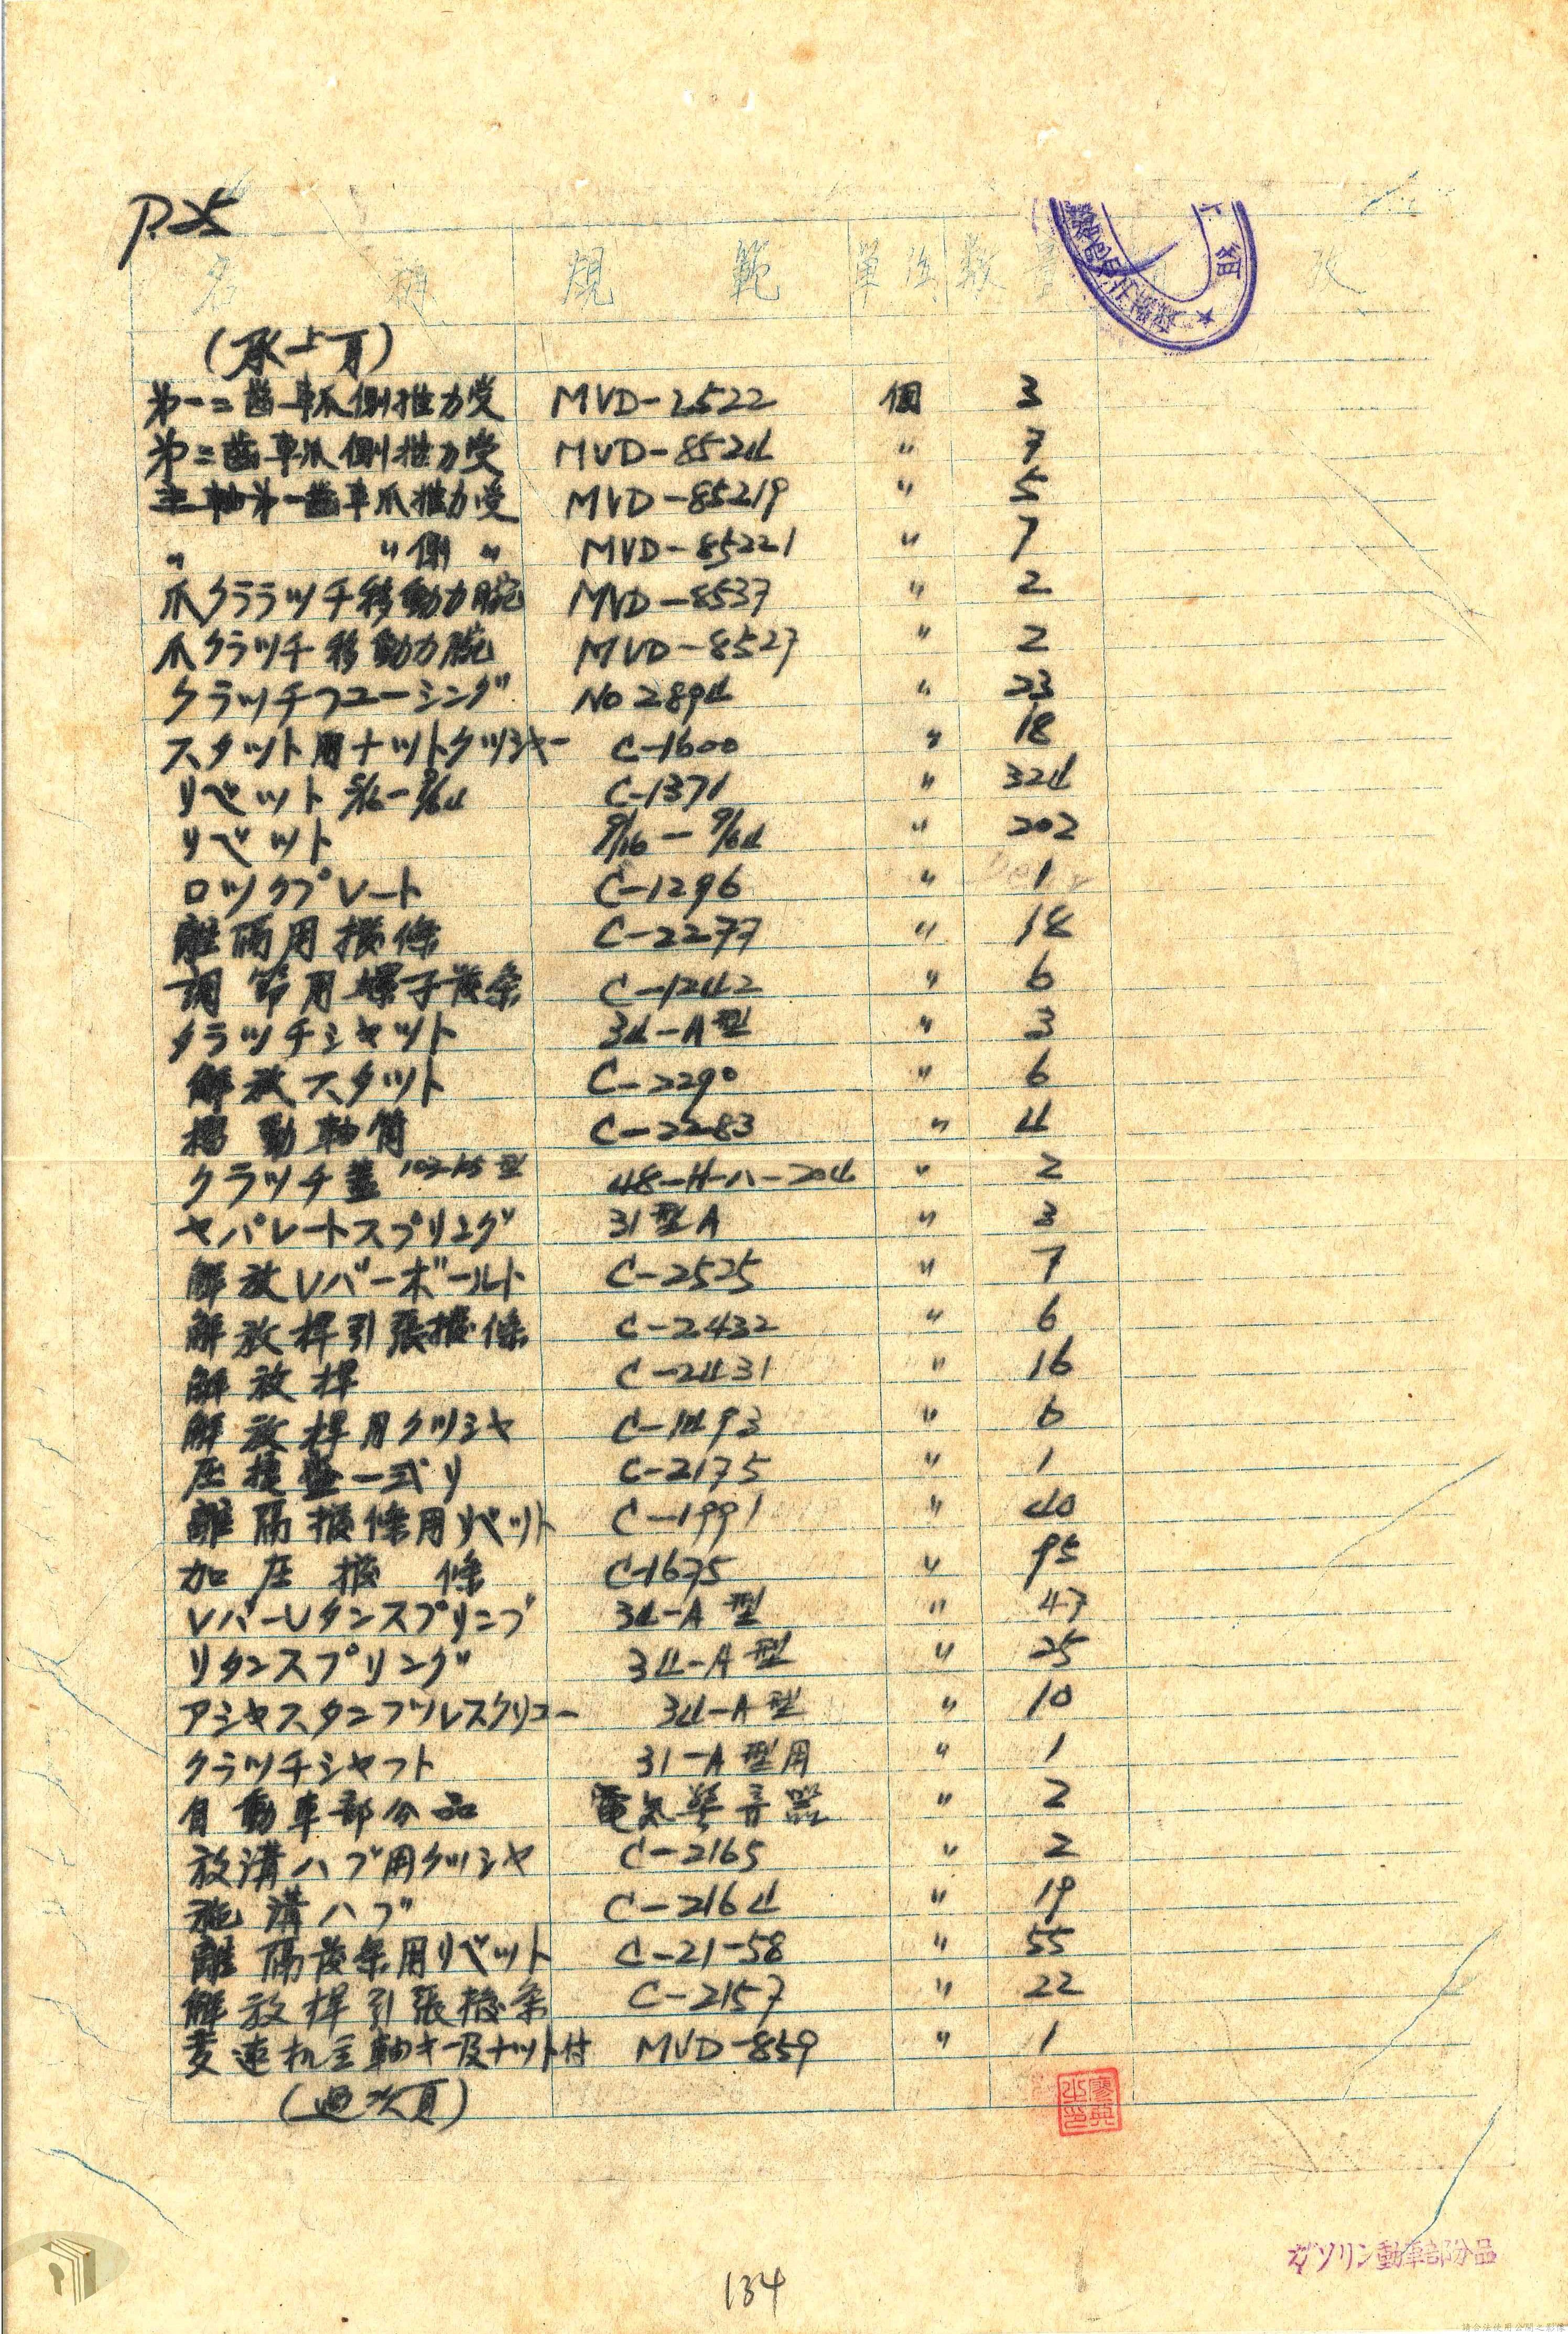 P.25
名 稱 規 範 單位 数量
(承上頁)
第一二齒車爪側推力受 MVD-2522 個 3
第二齒車爪側推力受 MVD-8524 〃 7
主軸第一齒車爪推力受 MVD-85219 〃 5
〃 〃側〃 MVD-85221 〃 7
爪クララツチ移動力腕 MVD-8537 〃 2
爪クラツチ移動力腕 MVD-8527 〃 2
クラツチフエーシング NO 2894 〃 23
スタツト用ナツトクツシヤー C-1600 〃 18
リベット 5/16-9/64 C-1371 〃 324
リベット 9/16-9/64 〃 202
ロツクプレート C-1296 〃 1
離隔用撥條 C-2277 〃 18
調節用螺子發条 C-1242 〃 6
クラツチシヤツト 34-A型 〃 3
解放スタツト C-2290 〃 6
摺動軸筒 C-2283 〃 4
クラツチ蓋 型 48-H-ハ-204 〃 2
セパレートスプリング 31型A 〃 3
解放レバーボールト C-2525 〃 7
解放桿引張撥條 C-2432 〃 6
解放桿 C-2431 〃 16
解放桿用クツシヤ C-1493 〃 6
圧換盤一式リ C-2175 〃 1
離隔撥條用リベツト C-1991 〃 40
加圧撥條 C-1675 〃 95
レバーリタンスプリング 34-A型 〃 47
リタンスプリング 34-A型 〃 25
アジヤスタンフツレスクリユー 34-A型 〃 10
クラツチシヤフト 31-A型用 〃 1
自動車部分品 電気 器 〃 2
放溝ハブ用クツシヤ C-2165 〃 2
施溝ハブ C-2164 〃 19
離隔發条用リベット C-21-58 〃 55
解放桿引張撥条 C-2157 〃 22
変速机主軸キー及ナット付 MVD-859 〃 1
(過次頁)
ガソリン動車部分品
134